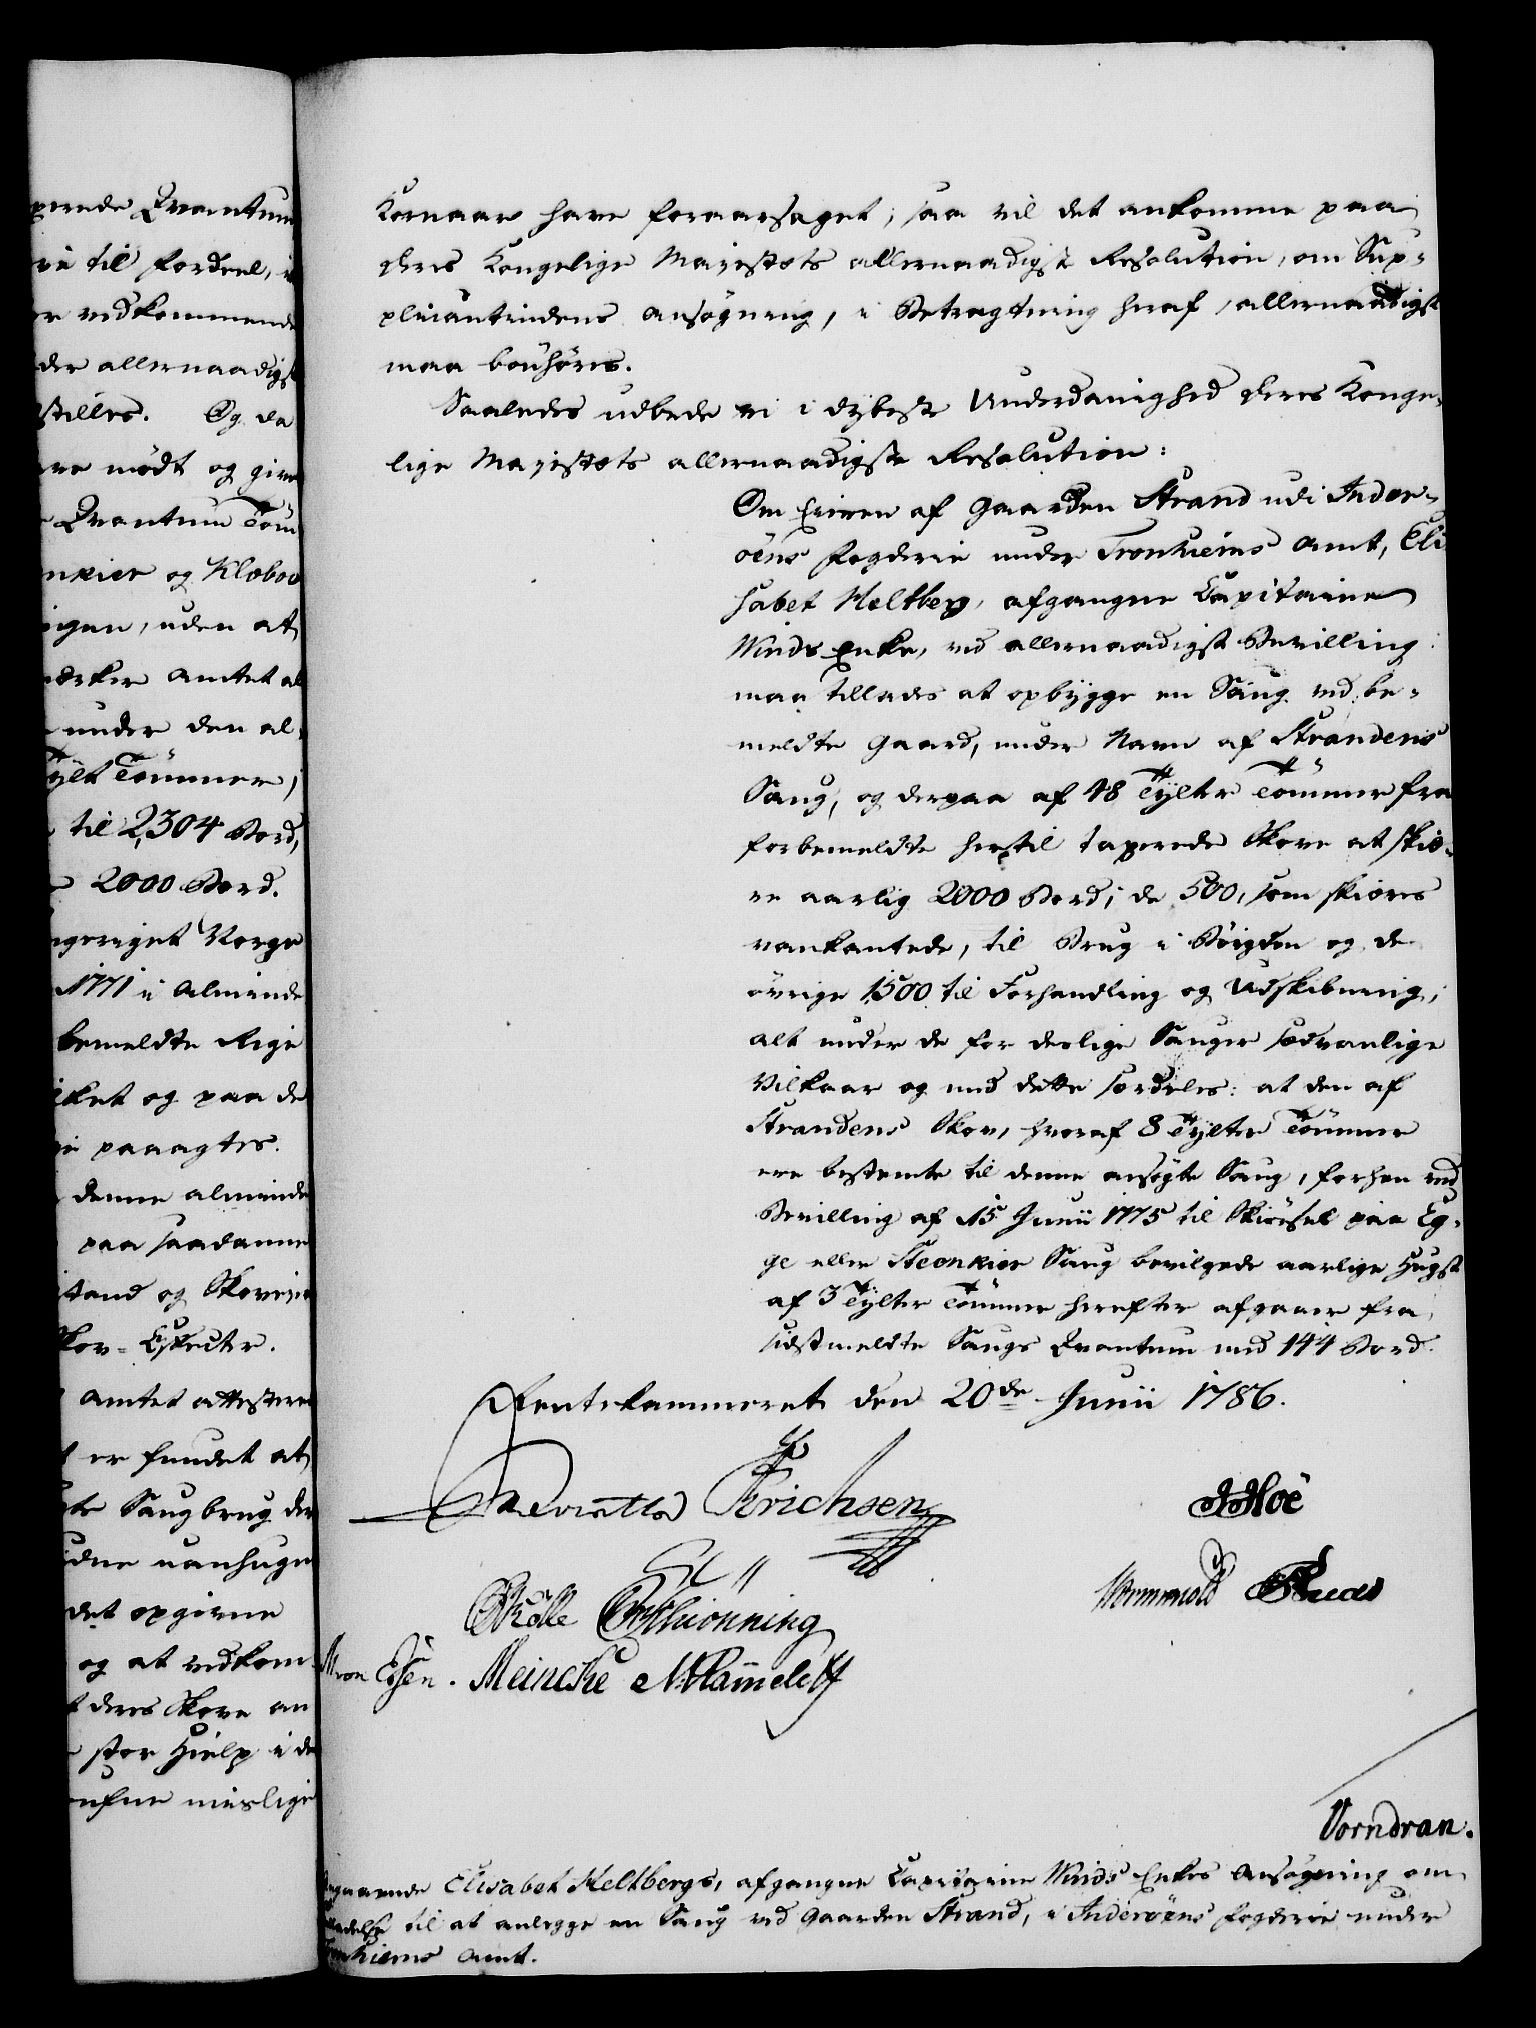 perede Qvantum
re til fordeel,
er vedkommende
der allernaadigst
stilles. Og da
ere mødt og give
Qvantum Töm
nkier og Kloboe
igen, uden at
mærker Amtet al
under den al
Tylt Tömmer,
til 2,304 Bord,
2000 Bord.
ngeriget Norge
1771 i Alminde
bemeldte Rige
ket og paa de
paaagtes.
denne alminde
paa saadanne
stand og Skovejer
Skov-Effecter.
Amtet attestere
er fundet at
te Saugbrug der
uanhugn
det opgivne
og at vedkom
deres Skove an
stor Hielp i de
mislige
Kornaar have foraarsaget; saa vil det ankomme paa
Deres Kongelige Majestæts allernaadigste Resolution, om Sup-
plicantindens Ansøgning, i Betragtning heraf, allernaadigst
maa bønhøres.
Saaledes udbede vi i dybeste Underdanighed Deres Konge-
lige Majestæts allernaadigste Resolution:
Om Eieren af Gaarden Strand udi Inder-
öens Fogderie under Tronhiems Amt, Eli-
sabet Meltberg, afgangne Capitaine
Winds Enke, ved allernaadigst Bevilling
maa tillades at opbygge en Saug ved be-
meldte Gaard, under Navn af Strandens
Saug, og derpaa af 48 Tylter Tömmer fra
forbemeldte hertil taxerede Skove at skiæ-
re aarlig 2000 Bord; de 500, som skiæres
vankantede, til Brug i Böigden og de
övrige 1500 til Forhandling og Udskibning;
alt under de for deslige Sauger sædvanlige
Vilkaar og med dette særdeles: at den af
Strandens Skov, hvoraf 8 Tylter Tömmer
ere bestemte til denne ansøgte Saug, forhen ved
Bevilling af 15 Junii 1775 til Skiörsel paa Eg-
ge eller Steenkier Saug bevilgede aarlige Hugst
af 3 Tylter Tömmer herefter afgaaer fra
sidstmeldte Saugs Qvantum med 144 Bord.
Rentekammeret den 20de Junii 1786.
Erichsen
Hoë
Wormskiold
Thönning
Essen. Meincke
Vorndran.
Angaaende Elisabet Meltbergs, afgangne Capitaine Winds Enkes Ansøgning om
Tilladelse til at anlegge en Saug ved Gaarden Strand, i Inderöens Fogderie under
Tronhiems Amt.